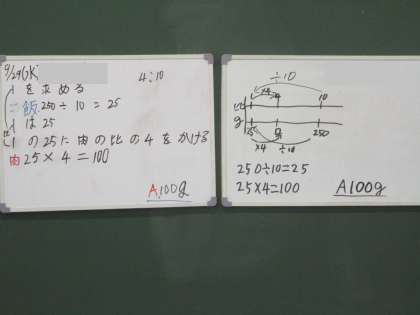 9/29GK
4:10
1を求める
ご飯 250÷10=25
1は25
比1の25に肉の比の4をかける
肉25×4=100
A100g
÷10
×4
1 4 10
比
g
25 250
×4 ÷10
250÷10=25
25×4=100
A100g